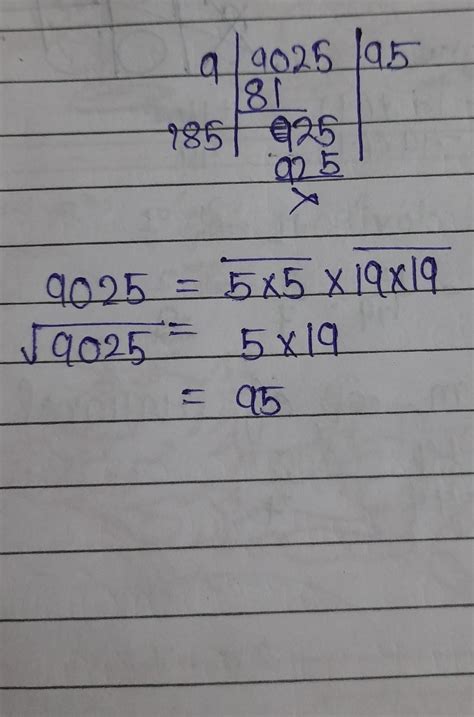 9 9025 95
81
185 925
925
×
9025 = 5×5 × 19×19
√9025 = 5×19
= 95